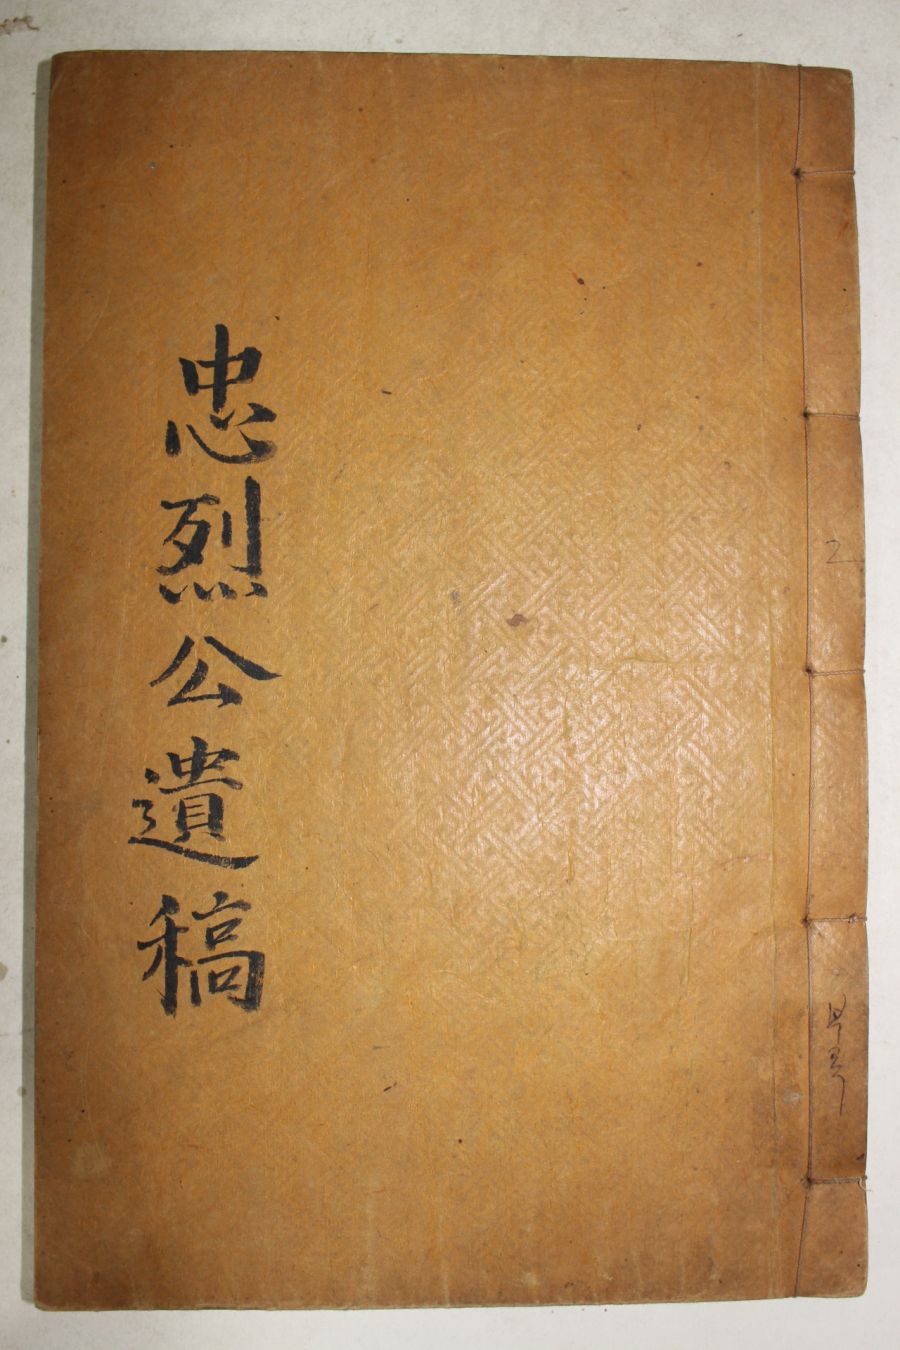 忠烈公遺稿
2